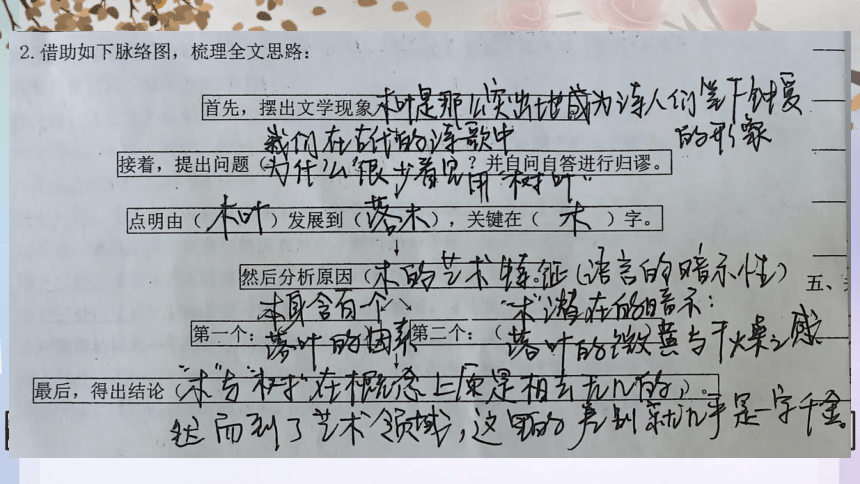 2. 借助如下脉络图，梳理全文思路：
首先，摆出文学现象 木叶是那么突出地成为诗人们笔下钟爱的形象
我们在古代的诗歌中
接着，提出问题（为什么很少看见用"树叶"？并自问自答进行归谬。
点明由（木叶）发展到（落木），关键在（木）字。
然后分析原因（木的艺术特征（语言的暗示性）
五、
第一个：本身含有一个落叶的因素
第二个：（"木"潜在的暗示：落叶的微黄与干燥之感
最后，得出结论（"木"与"树"在概念上原是相去无几的，）。
然而到了艺术领域，这里的差别就几乎是一字千金。